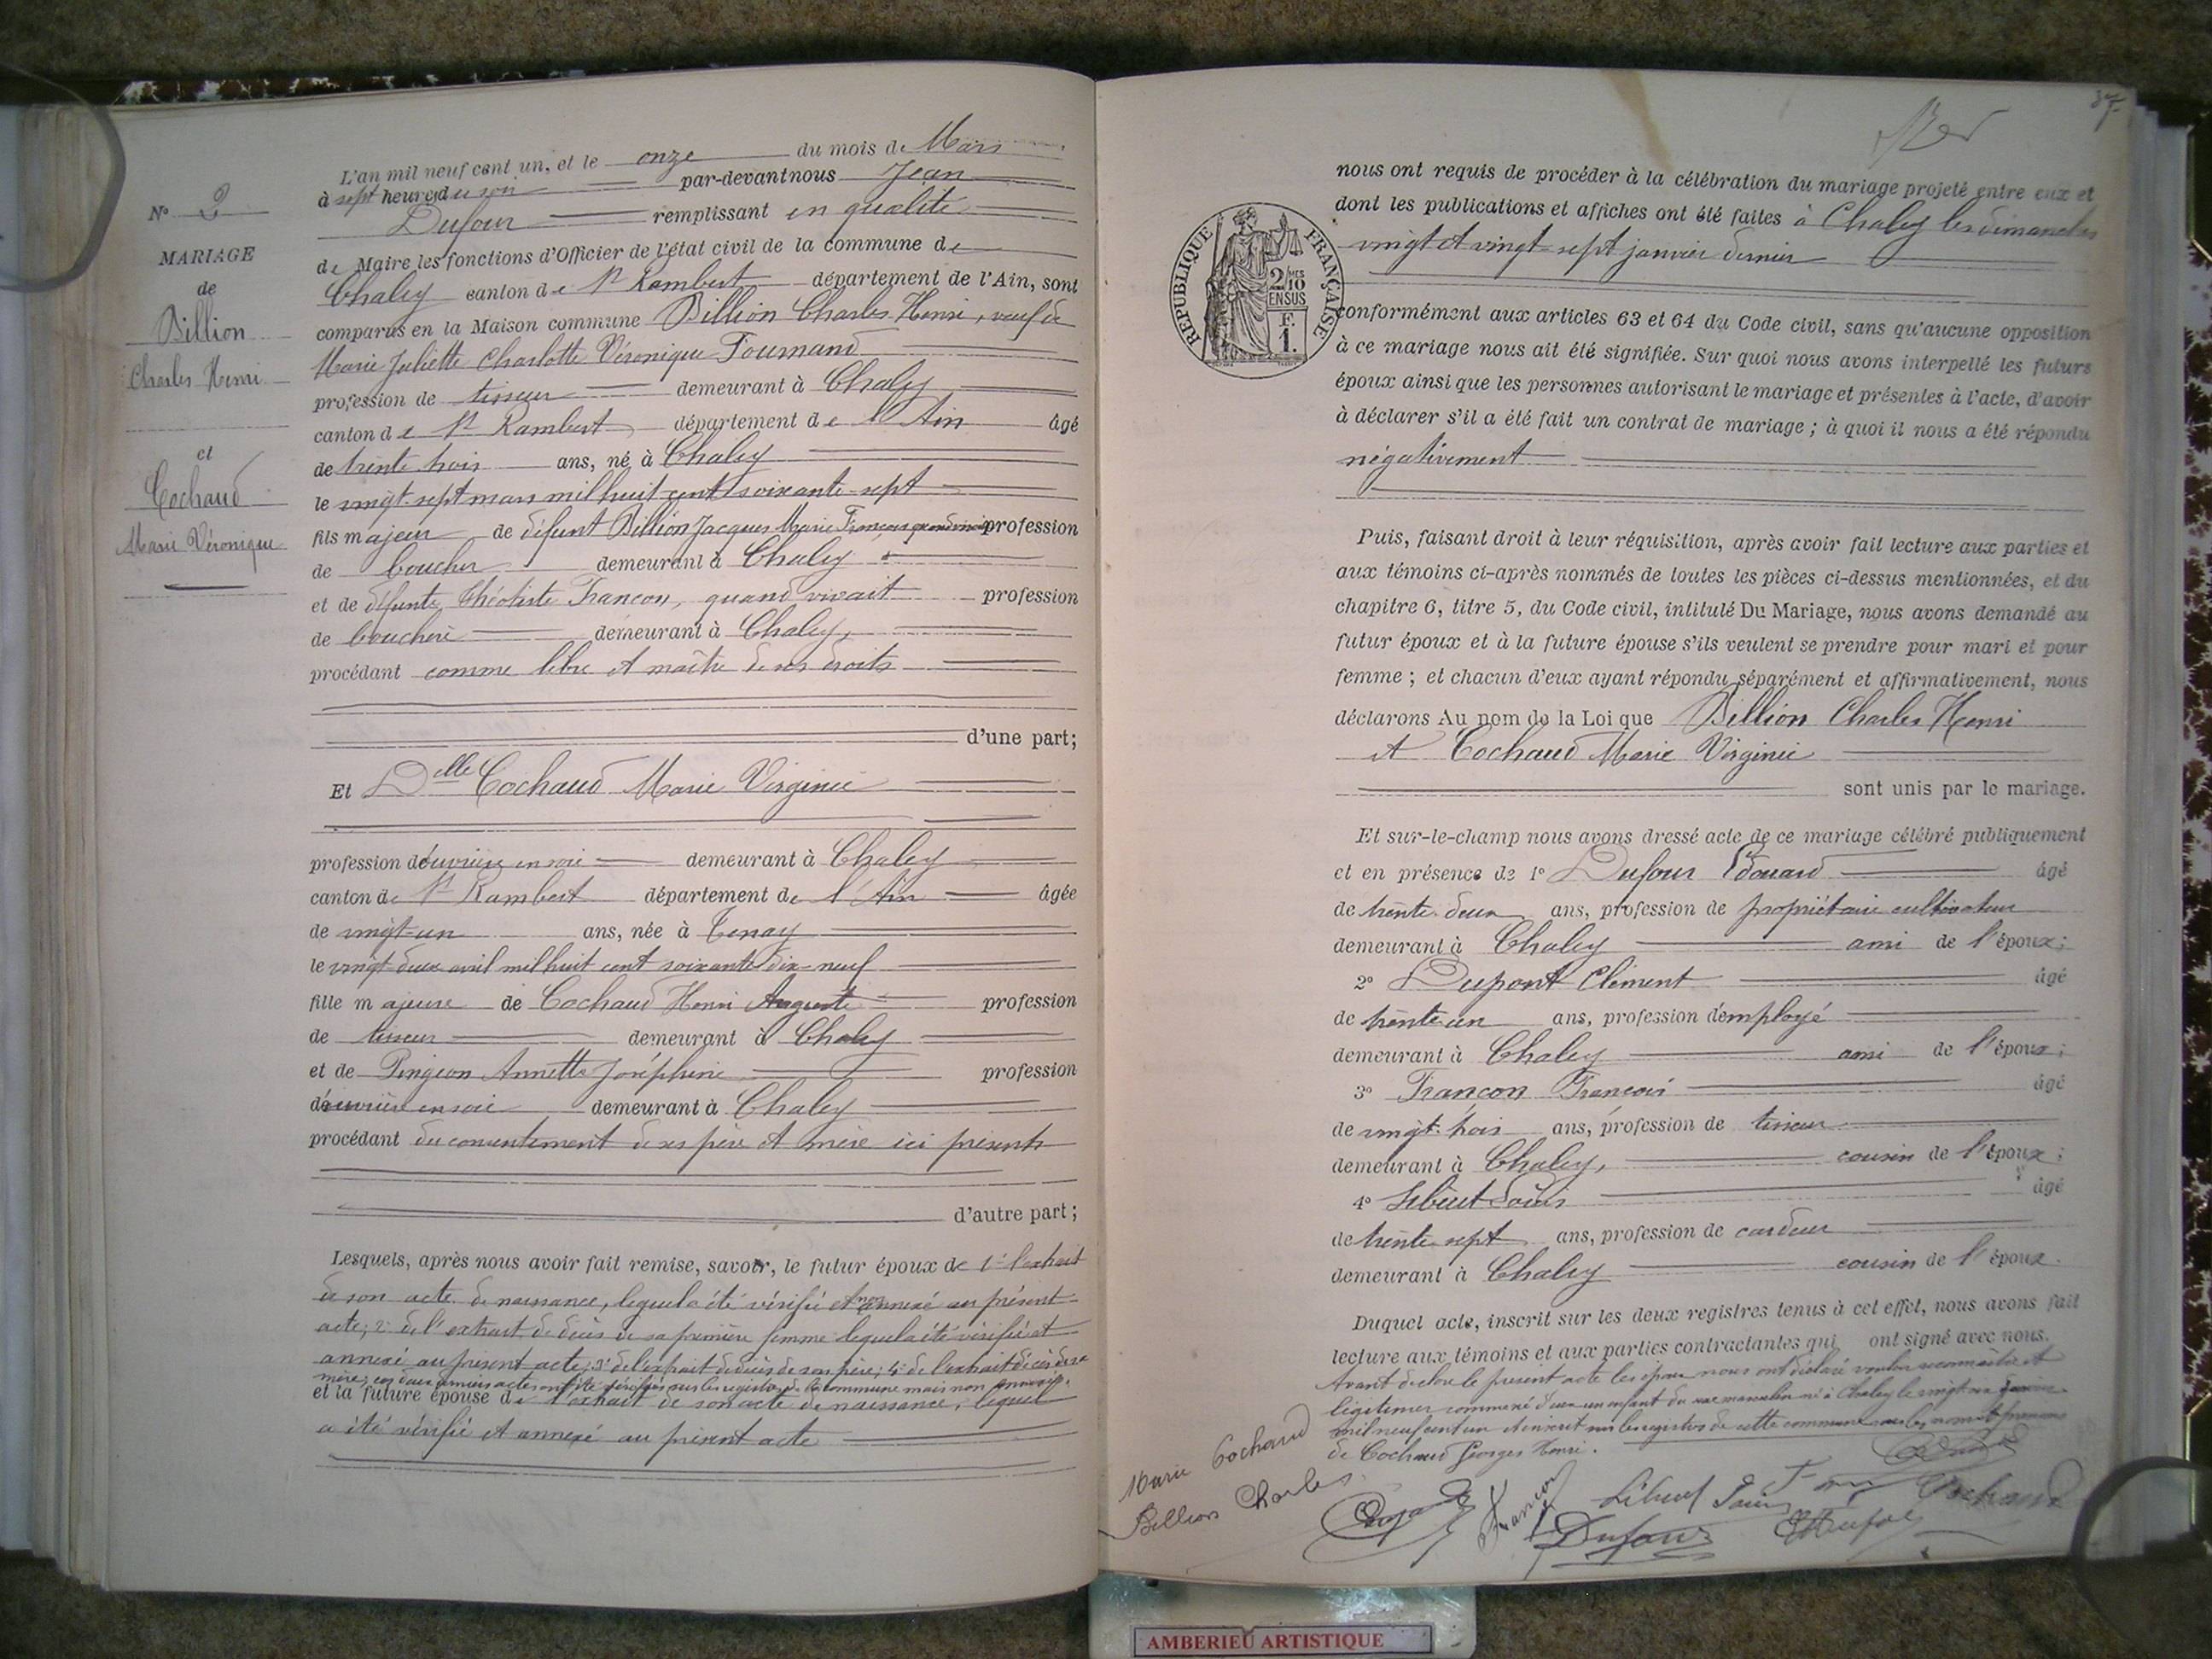 L'an mil neuf cent un, et le onze du mois de Mars
à sept heures du soir par-devant nous Jean
Dufour remplissant en qualité
de Maire les fonctions d'Officier de l'état civil de la commune de
Chaley canton de St Rambert département de l'Ain, sont
comparus en la Maison commune Billion Charles Henri, veuf de
Marie Juliette Charlotte Véronique Tournand
profession de tisseur demeurant à Chaley
canton de St Rambert département de l'Ain âgé
de trente trois ans, né à Chaley
le vingt-sept mars mil huit cent soixante-sept
fils majeur de défunt Billion Jacques Marie François quand vivait profession
de boucher demeurant à Chaley
et de défunte Théotiste Françon, quand vivait profession
de bouchère demeurant à Chaley,
procédant comme libre et maître de ses droits
d'une part;
Et Delle Cochaud Marie Virginie
profession d'ouvrière en soie demeurant à Chaley
canton de St Rambert département de l'Ain âgée
de vingt-un ans, née à Tenay
le vingt-deux avril mil huit cent soixante dix-neuf
fille majeure de Cochaud Henri Auguste profession
de tisseur demeurant à Chaley
et de Pingeon Annette Joséphine profession
d'ouvrière en soie demeurant à Chaley
procédant du consentement de ses père et mère ici présents
d'autre part;
Lesquels, après nous avoir fait remise, savoir, le futur époux de 1° l'extrait
de son acte de naissance, lequel a été vérifié et non annexé au présent
acte; 2° de l'extrait de décès de sa première femme lequel a été vérifié et
annexé au présent acte; 3° de l'extrait de décès de son père; 4° de l'extrait de décès de sa
mère; ces deux derniers actes ont été vérifiés sur les registres de la commune mais non annexés.
et la future épouse de l'extrait de son acte de naissance, lequel
a été vérifié et annexé au présent acte
N° 2
MARIAGE
de
Billion
Charles Henri
et
Cochaud
Marie Véronique
37
nous ont requis de procéder à la célébration du mariage projeté entre eux et
dont les publications et affiches ont été faites à Chaley les dimanches
vingt et vingt-sept janvier dernier
RÉPUBLIQUE FRANÇAISE
2/10 MES
EN SUS
F.
1.
conformément aux articles 63 et 64 du Code civil, sans qu'aucune opposition
à ce mariage nous ait été signifiée. Sur quoi nous avons interpellé les futurs
époux ainsi que les personnes autorisant le mariage et présentes à l'acte, d'avoir
à déclarer s'il a été fait un contrat de mariage; à quoi il nous a été répondu
négativement
Puis, faisant droit à leur réquisition, après avoir fait lecture aux parties et
aux témoins ci-après nommés de toutes les pièces ci-dessus mentionnées, et du
chapitre 6, titre 5, du Code civil, intitulé Du Mariage, nous avons demandé au
futur époux et à la future épouse s'ils veulent se prendre pour mari et pour
femme; et chacun d'eux ayant répondu séparément et affirmativement, nous
déclarons Au nom de la Loi que Billion Charles Henri
et Cochaud Marie Virginie
sont unis par le mariage.
Et sur-le-champ nous avons dressé acte de ce mariage célébré publiquement
et en présence de 1° Dufour Edouard âgé
de trente-deux ans, profession de propriétaire cultivateur
demeurant à Chaley ami de l'époux;
2° Dupont Clément âgé
de trente un ans, profession d'employé
demeurant à Chaley ami de l'époux;
3° Françon François âgé
de vingt-trois ans, profession de tisseur
demeurant à Chaley, cousin de l'époux;
4° Louis âgé
de trente-sept ans, profession de cardeur
demeurant à Chaley cousin de l'époux.
Duquel acte, inscrit sur les deux registres tenus à cet effet, nous avons fait
lecture aux témoins et aux parties contractantes qui ont signé avec nous.
Avant de clore le présent acte les époux nous ont déclaré vouloir reconnaître et
légitimer comme né d'eux un enfant du sexe masculin né à Chaley le vingt janvier
mil neuf cent un et inscrit sur les registres de cette commune sous les nom et prénoms
de Cochaud Georges Henri.
Marie Cochaud
Billion Charles
Françon
Dufour
Cochaud
AMBERIEU ARTISTIQUE